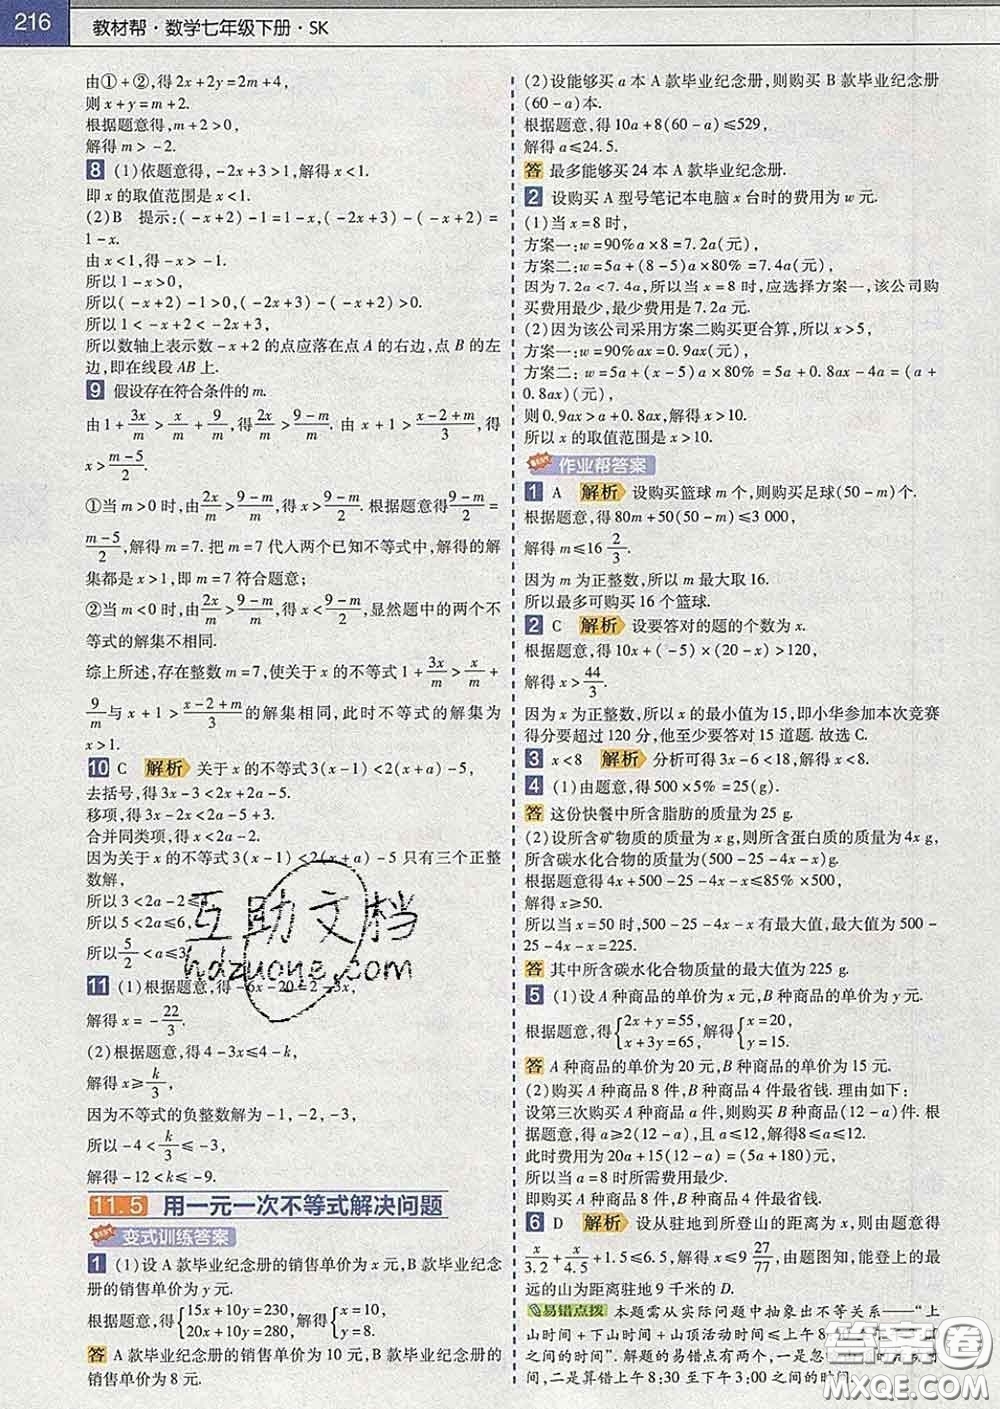 216
教材帮·数学七年级下册·SK
由①+②,得 2x+2y=2m+4,
则 x+y=m+2.
根据题意得,m+2>0,
解得 m>-2.
8 (1)依题意得,-2x+3>1,解得 x<1.
即 x 的取值范围是 x<1.
(2)B 提示:(-x+2)-1=1-x,(-2x+3)-(-x+2)=
1-x.
由 x<1,得-x>-1.
所以1-x>0,
所以(-x+2)-1>0,(-2x+3)-(-x+2)>0.
所以1<-x+2,(-x+2)<(-2x+3).
所以数轴上表示数-x+2 的点应落在点 A 的右边,点 B 的左
边,即在线段 AB 上.
9 假设存在符合条件的 m.
由 1+3x/m>x/m+9/m,得2x/m>9-m/m. 由 x+1>x-2+m/3,得
x>m-5/2.
①当 m>0 时,由2x/m>9-m/m,得 x>9-m/2. 根据题意得9-m/2=
m-5/2,解得 m=7. 把 m=7 代入两个已知不等式中,解得的解
集都是 x>1,即 m=7 符合题意;
②当 m<0 时,由2x/m>9-m/m,得 x<9-m/2,显然题中的两个不
等式的解集不相同.
综上所述,存在整数 m=7,使关于 x 的不等式 1+3x/m>x/m+
9/m与 x+1>x-2+m/3的解集相同,此时不等式的解集为
x>1.
10 C 解析 关于 x 的不等式 3(x-1)<2(x+a)-5,
去括号,得 3x-3<2x+2a-5.
移项,得 3x-2x<2a-5+3.
合并同类项,得 x<2a-2.
因为关于 x 的不等式 3(x-1)<2(x+a)-5 只有三个正整
数解,
所以 3<2a-2≤
所以 5<2a≤6,
所以5/2<a≤3
11 (1)根据题意,得-6x-20=2-3x,
解得 x=-22/3.
(2)根据题意,得 4-3x≤4-k,
解得 x≥k/3,
因为不等式的负整数解为-1,-2,-3,
所以-4<k/3≤-3,
解得-12<k≤-9.
11.5 用一元一次不等式解决问题
变式训练答案
1 (1)设 A 款毕业纪念册的销售单价为 x 元,B 款毕业纪念
册的销售单价为 y 元.
根据题意,得{15x+10y=230, 20x+10y=280,解得{x=10, y=8.
答 A 款毕业纪念册的销售单价为 10 元,B 款毕业纪念册的
销售单价为 8 元.
(2)设能够买 a 本 A 款毕业纪念册,则购买 B 款毕业纪念册
(60-a)本.
根据题意,得 10a+8(60-a)≤529,
解得 a≤24.5.
答 最多能够买 24 本 A 款毕业纪念册.
2 设购买 A 型号笔记本电脑 x 台时的费用为 w 元.
(1)当 x=8 时,
方案一:w=90%a×8=7.2a(元),
方案二:w=5a+(8-5)a×80%=7.4a(元),
因为 7.2a<7.4a,所以当 x=8 时,应选择方案一,该公司购
买费用最少,最少费用是 7.2a 元.
(2)因为该公司采用方案二购买更合算,所以 x>5,
方案一:w=90%ax=0.9ax(元),
方案二:w=5a+(x-5)a×80%=5a+0.8ax-4a=(a+
0.8ax)(元),
则 0.9ax>a+0.8ax,解得 x>10.
所以 x 的取值范围是 x>10.
作业帮答案
1 A 解析 设购买篮球 m 个,则购买足球(50-m)个.
根据题意,得 80m+50(50-m)≤3 000,
解得 m≤16 2/3.
因为 m 为正整数,所以 m 最大取 16.
所以最多可购买 16 个篮球.
2 C 解析 设要答对的题的个数为 x.
根据题意,得 10x+(-5)×(20-x)>120,
解得 x>44/3.
因为 x 为正整数,所以 x 的最小值为 15,即小华参加本次竞赛
得分要超过 120 分,他至少要答对 15 道题. 故选 C.
3 x<8 解析 分析可得 3x-6<18,解得 x<8.
4 (1)由题意,得 500×5%=25(g).
答 这份快餐中所含脂肪的质量为 25 g.
(2)设所含矿物质的质量为 x g,则所含蛋白质的质量为 4x g,
所含碳水化合物的质量为(500-25-4x-x)g.
根据题意得 4x+500-25-4x-x≤85%×500,
解得 x≥50.
所以当 x=50 时,500-25-4x-x 有最大值,最大值为 500-
25-4x-x=225.
答 其中所含碳水化合物质量的最大值为 225 g.
5 (1)设 A 种商品的单价为 x 元,B 种商品的单价为 y 元.
根据题意,得{2x+y=55, x+3y=65,解得{x=20, y=15.
答 A 种商品的单价为 20 元,B 种商品的单价为 15 元.
(2)购买 A 种商品 8 件,B 种商品 4 件最省钱. 理由如下:
设第三次购买 A 种商品 a 件,则购买 B 种商品(12-a)件. 根
据题意,得 a≥2(12-a),且 a≤12,解得8≤a≤12.
此时费用为 20a+15(12-a)=(5a+180)元,
所以当 a=8 时所需费用最少.
即购买 A 种商品 8 件,B 种商品 4 件最省钱.
6 D 解析 设从驻地到所登山的距离为 x,则由题意得
x/3.2+x/4.5+1.5≤6.5,解得 x≤9 27/77,由题图知,能登上的最
远的山为距离驻地 9 千米的 D.
易错点拨 本题需从实际问题中抽象出不等关系——“上
山时间+下山时间+山顶活动时间≤上午8
之间的时间”. 解题的易错点有两个,一是忽
间,二是算错上午 8:30 至下午 3:00 之间的时间.
互助文档
hdzuone.com
答案圈
MXQE.COM